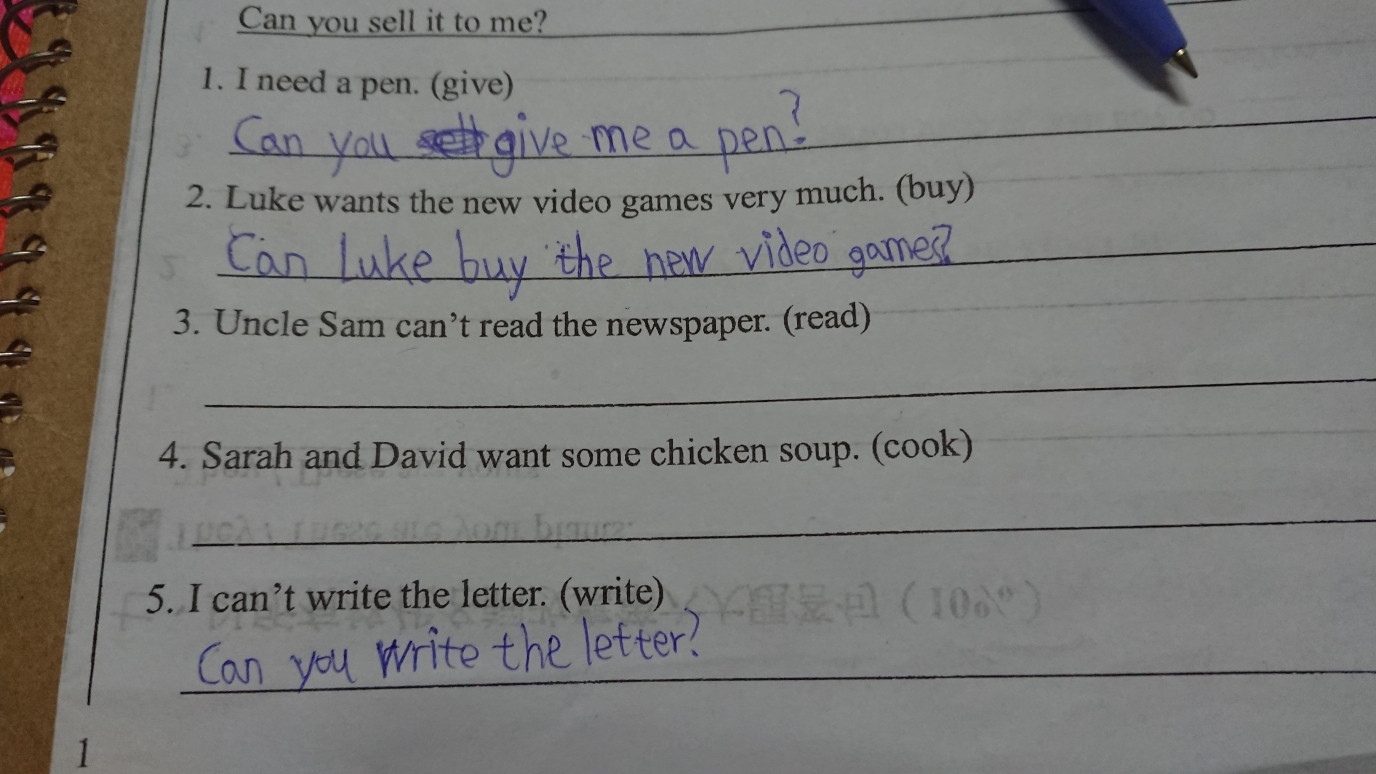 Can you sell it to me?
1. I need a pen. (give)
Can you give me a pen?
2. Luke wants the new video games very much. (buy)
Can Luke buy the new video games?
3. Uncle Sam can't read the newspaper. (read)
4. Sarah and David want some chicken soup. (cook)
5. I can't write the letter. (write)
Can you write the letter?
1